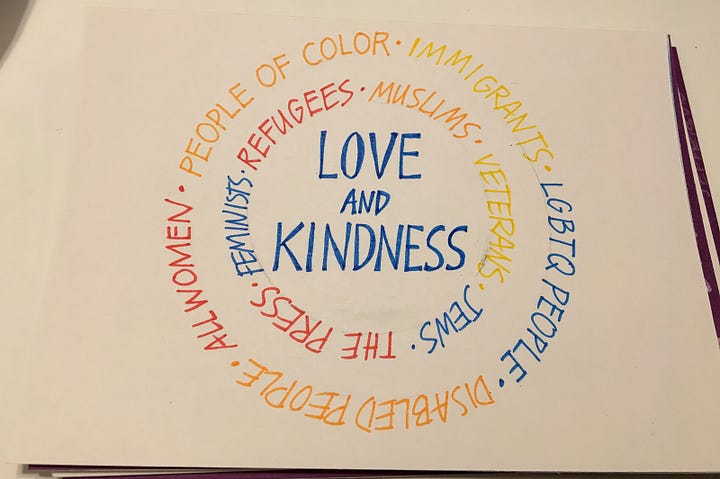 PEOPLE OF COLOR · IMMIGRANTS · LGBTQ PEOPLE · DISABLED PEOPLE · ALL WOMEN ·
REFUGEES · MUSLIMS · VETERANS · JEWS · THE PRESS · FEMINISTS ·
LOVE
AND
KINDNESS